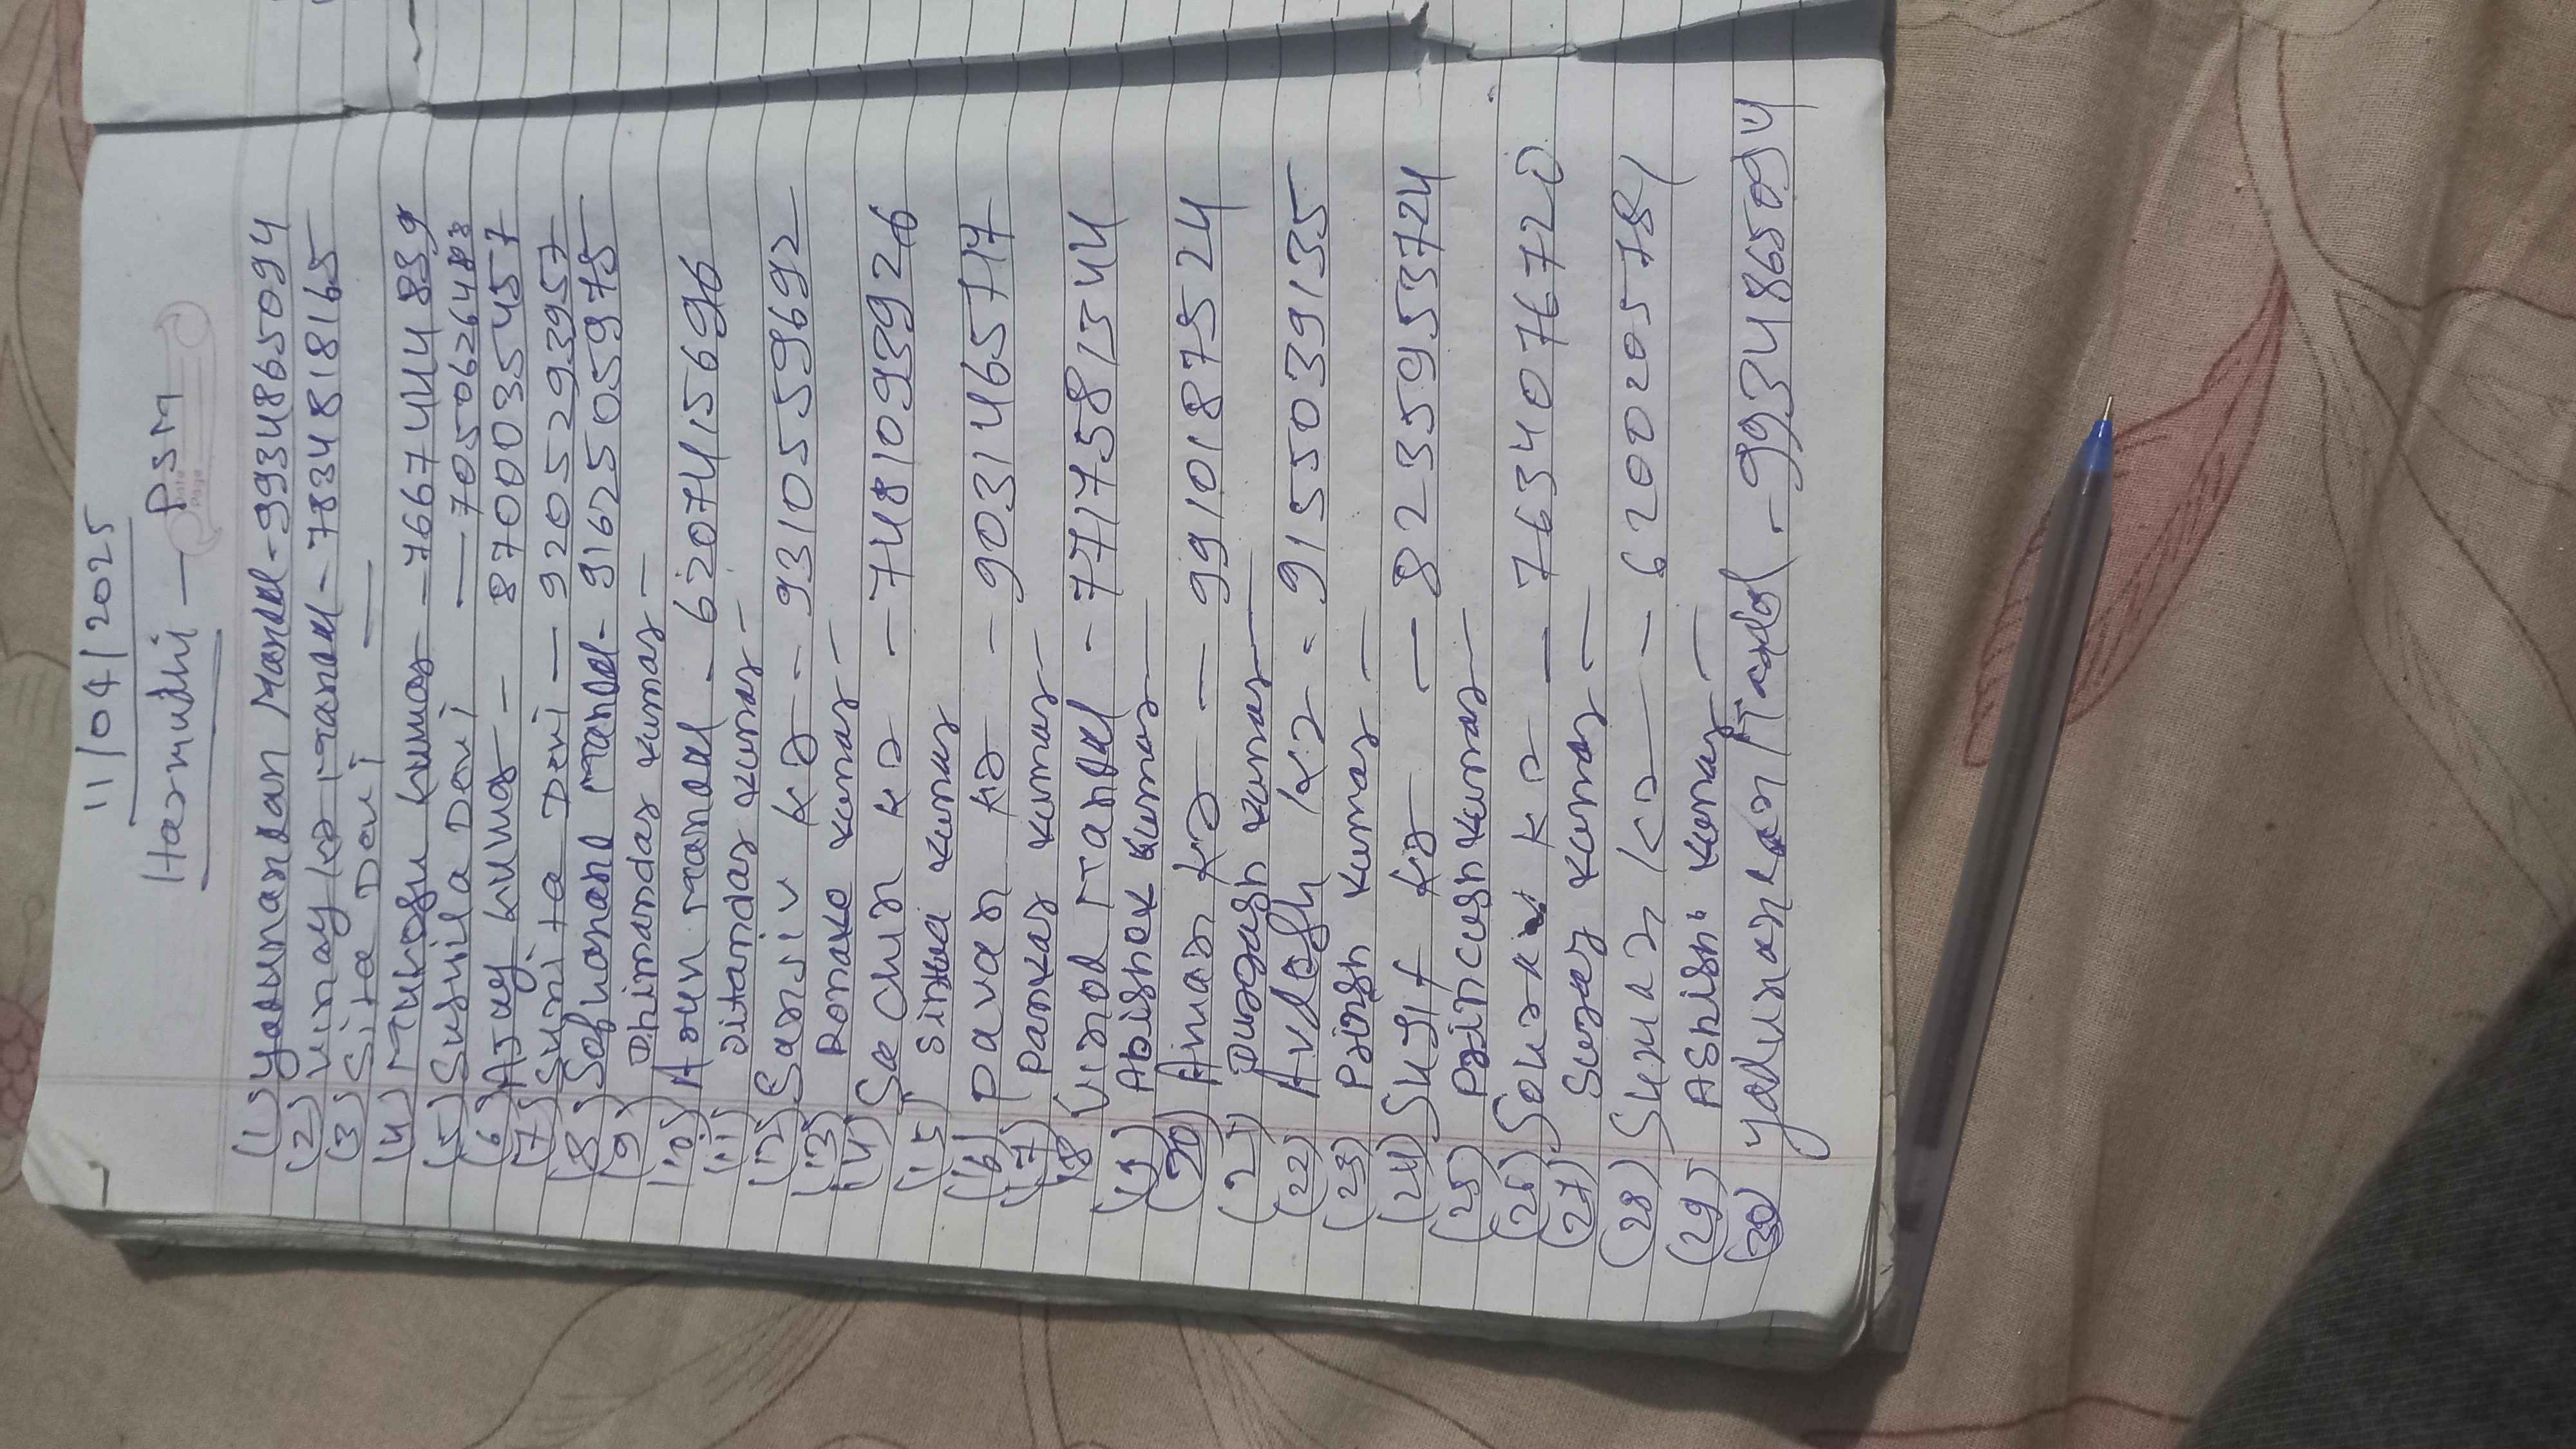 11/04/2025
Harmudhi — PSM
Date
Page
(1) Yadunandan Mandal - 9934865094
(2) Vinay Kr Mandal - 7834818165
(3) Sita Devi —
(4) Kumar — 7667444839
(5) Sushila Devi — 7050626483
(6) Ajay Kumar — 8700035457
(7) Sunita Devi — 9205293957
(8) Mandal - 9162505975
(9) Dhimandar Kumar —
(10) Arun Mandal - 6207415696
(11) Ditandar Kumar —
(12) Sanjiv Kr - 9310559692
(13) Kumar —
(14) Sachin Kr — 7481093926
(15) Kumar
(16) Pavan Kr - 9031465717
(17) Pankaj Kumar —
(18 Vinod Mandal - 7717581344
(19) Abishek Kumar —
(20) Aman Kr — 9910187524
(21) Durgash Kumar —
(22) Avdesh Kr - 9155039135
(23) Prinsh Kumar —
(24) Sujit Kr — 8235953724
(25) Princush Kumar —
(26) Kr — 7634076720
(27) Suraj Kumar —
(28) Suman Kr — 6200205781
(29) Ashish Kumar —
(30) Yadunandan Mandal - 9934865094